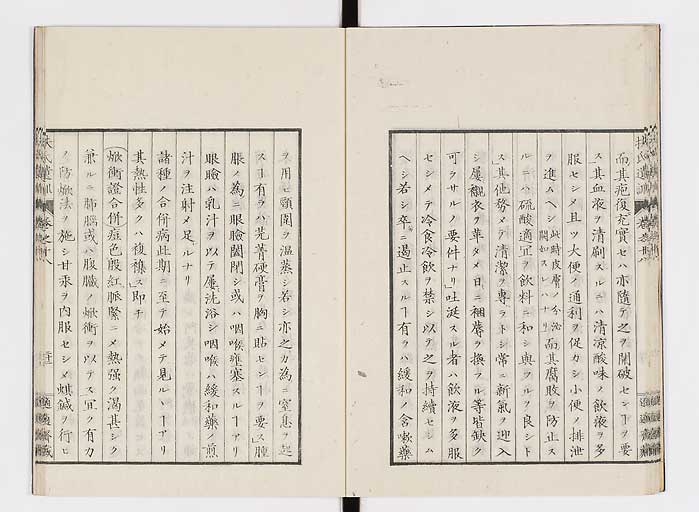 而其疱復充實セハ亦隨テ之ヲ開破センーヲ要
ス其血液ヲ清刷スルニハ清涼酸味ノ飲液ヲ多
服セシメ且ツ大便ノ通利ヲ促カシ小便ノ排泄
ヲ進ムヘシ此時皮膚ノ分泌闕如スレハナリ而其腐敗ヲ防止ス
ルニハ硫酸適宜ヲ飲料ニ和シ與フルヲ良シト
ス其他務メテ清潔ヲ專ラトシ常ニ新氣ヲ迎入
シ屢襯衣ヲ革タメ日ニ裀蓐ヲ換フル等皆缺ク
可ラサルノ要件ナリ」吐涎スル者ハ飲液ヲ多服
セシメテ冷食冷飲ヲ禁シ以テ之ヲ持續セシム
ヘシ若シ卒ニ遏止スルー有ラハ緩和ノ含嗽藥
ヲ用ヒ頸圍ヲ温蒸シ若シ亦之カ為ニ窒息ヲ起
スー有ラハ芫菁硬膏ヲ胸ニ貼センーヲ要ス」腫
脹ノ為ニ眼瞼闔閉シ或ハ咽喉壅塞スルーアリ
眼瞼ハ乳汁ヲ以テ屢洗浴シ咽喉ハ緩和藥ノ煎
汁ヲ注射メ足ルナリ
諸種ノ合併病此期ニ至テ始メテ見ルヽーアリ
其熱性多クハ複襍ス即チ
焮衝證合併痘色殷紅脈緊ニメ熱强ク渴甚シク
兼ルニ肺腦或ハ腹臓ノ焮衝ヲ以テス宜ク有力
ノ防焮法ヲ施シ甘汞ヲ内服セシメ蜞鍼ヲ行ヒ
扶氏遺訓
卷之十八
適適齋藏